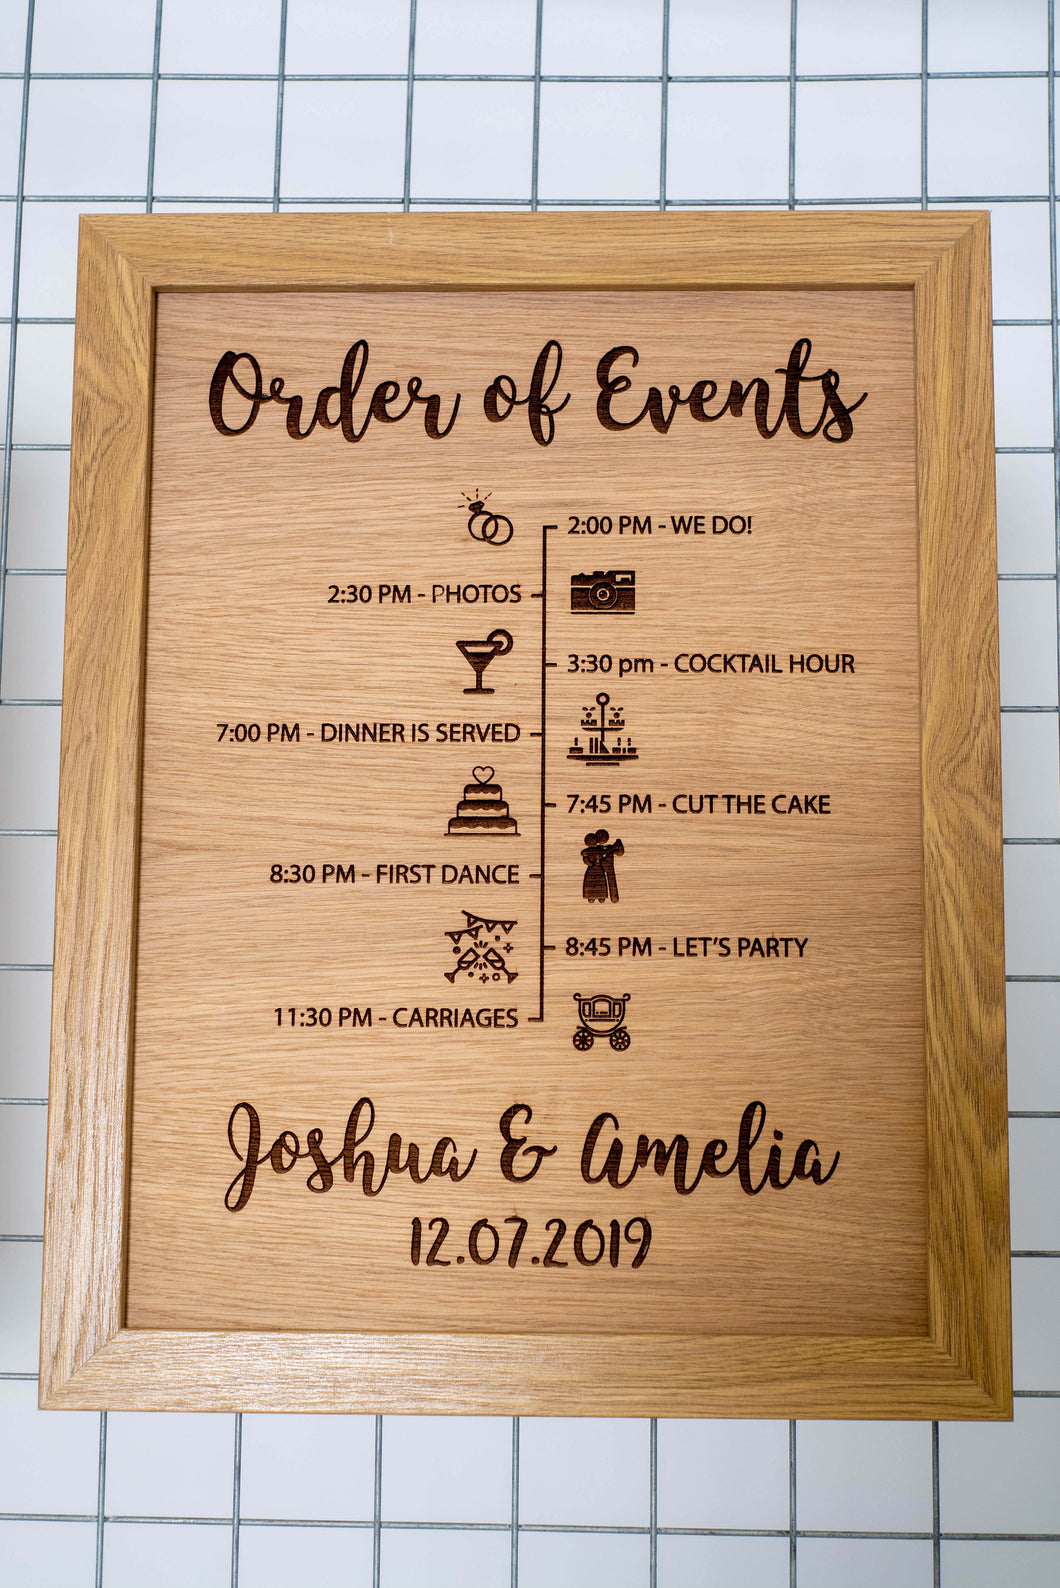 Order of Events
2:00 PM - WE DO!
2:30 PM - PHOTOS
3:30 pm - COCKTAIL HOUR
7:00 PM - DINNER IS SERVED
7:45 PM - CUT THE CAKE
8:30 PM - FIRST DANCE
8:45 PM - LET'S PARTY
11:30 PM - CARRIAGES
Joshua & Amelia
12.07.2019